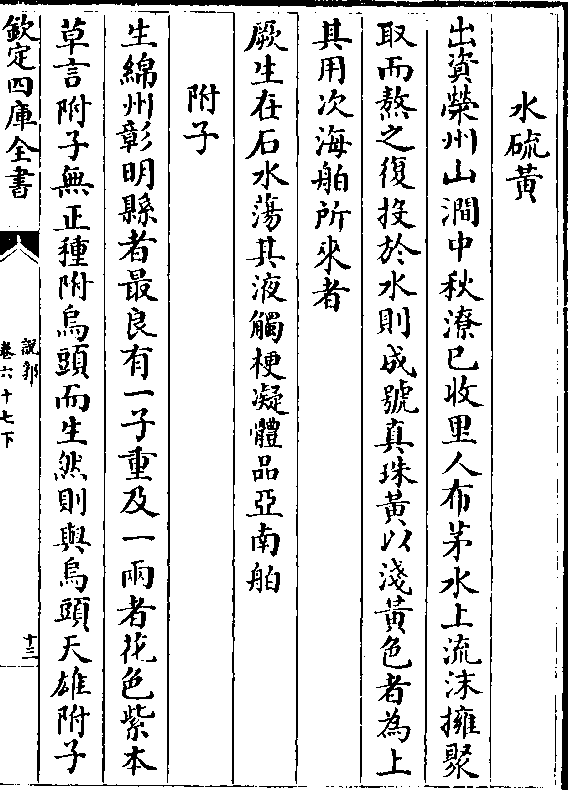 水硫黄
出資榮州山澗中秋潦已收里人布茅水上流沫擁聚
取而熬之復投於水則成號真珠黄以淺黄色者為上
其用次海舶所來者
厥生在石水蕩其液觸梗凝體品亞南舶
附子
生綿州彰明縣者最良有一子重及一兩者花色紫本
草言附子無正種附烏頭而生然則與烏頭天雄附子
欽定四庫全書
說郛
卷六十七下
十三